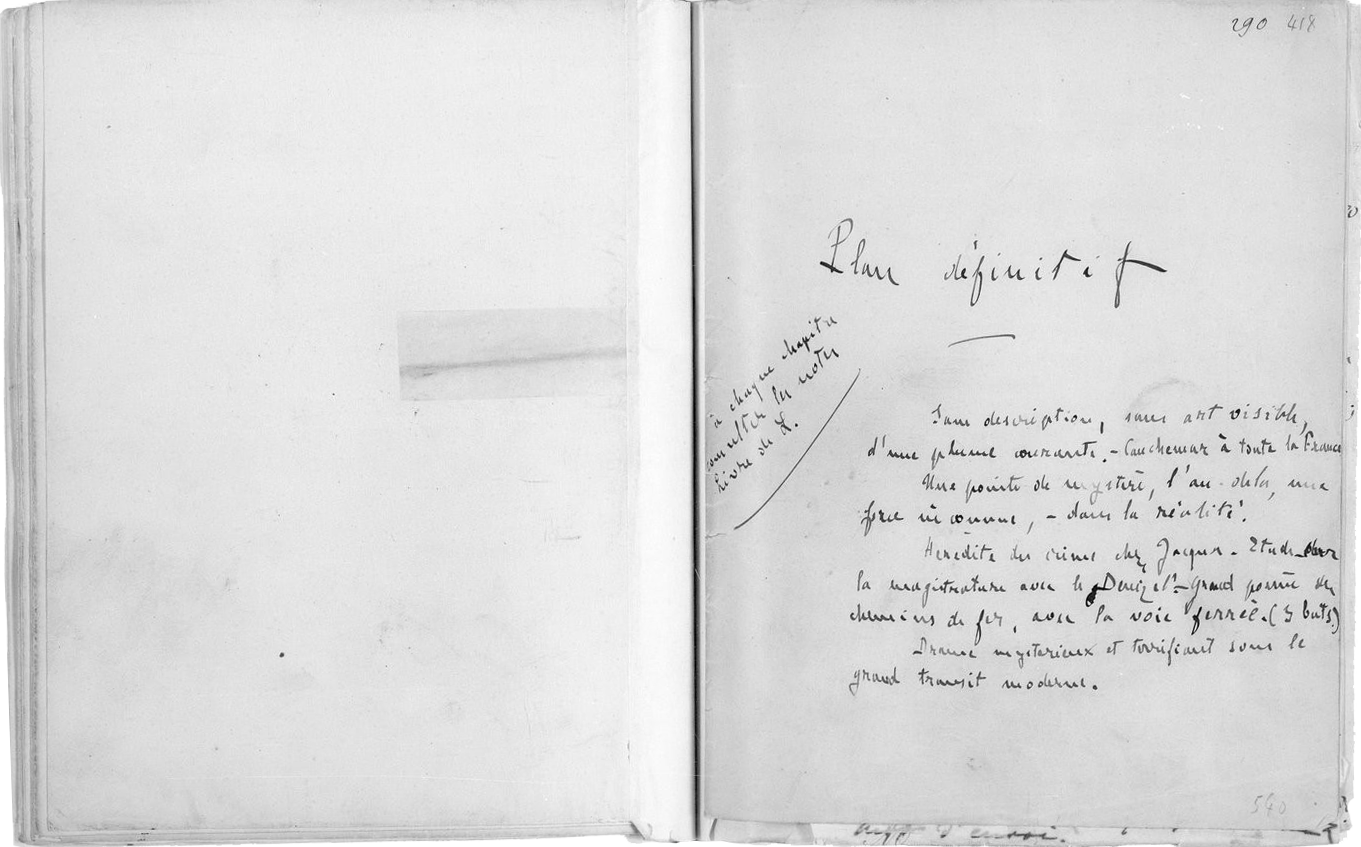 290 418
Plan définitif
à chaque chapitre
consulter les notes
livre de L.
Sans description, sans art visible,
d'une plume courante. - Cauchemar à toute la France
Une pointe de mystère, l'au-delà, une
force inconnue, - dans la réalité.
Hérédité des crimes chez Jacques - Etude sur
la magistrature avec le Denizet - Grand poème des
chemins de fer, avec la voie ferrée. (3 buts.)
Drame mystérieux et terrifiant sous le
grand transit moderne.
540